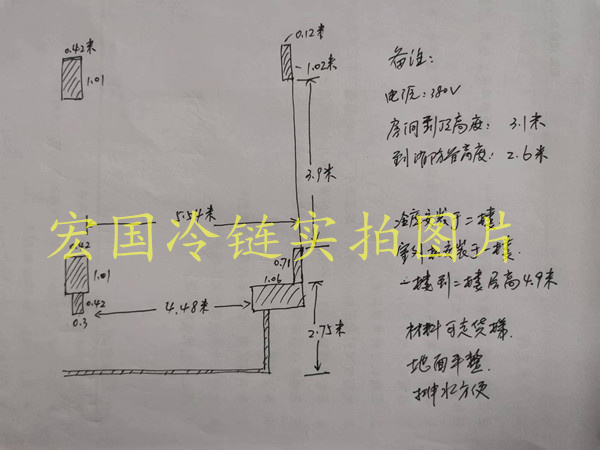 0.12米
0.42米
1.01
1.02米
3.9米
5.54米
宏国冷链实拍图片
0.42
1.01
0.71
1.06
0.42
0.3
4.48米
2.75米
备注:
电压:380V
房间到顶高度: 3.1米
到消防管高度: 2.6米
冷库安装于二楼
一楼到二楼层高4.9米
材料可走货梯.
地面平整.
排水方便